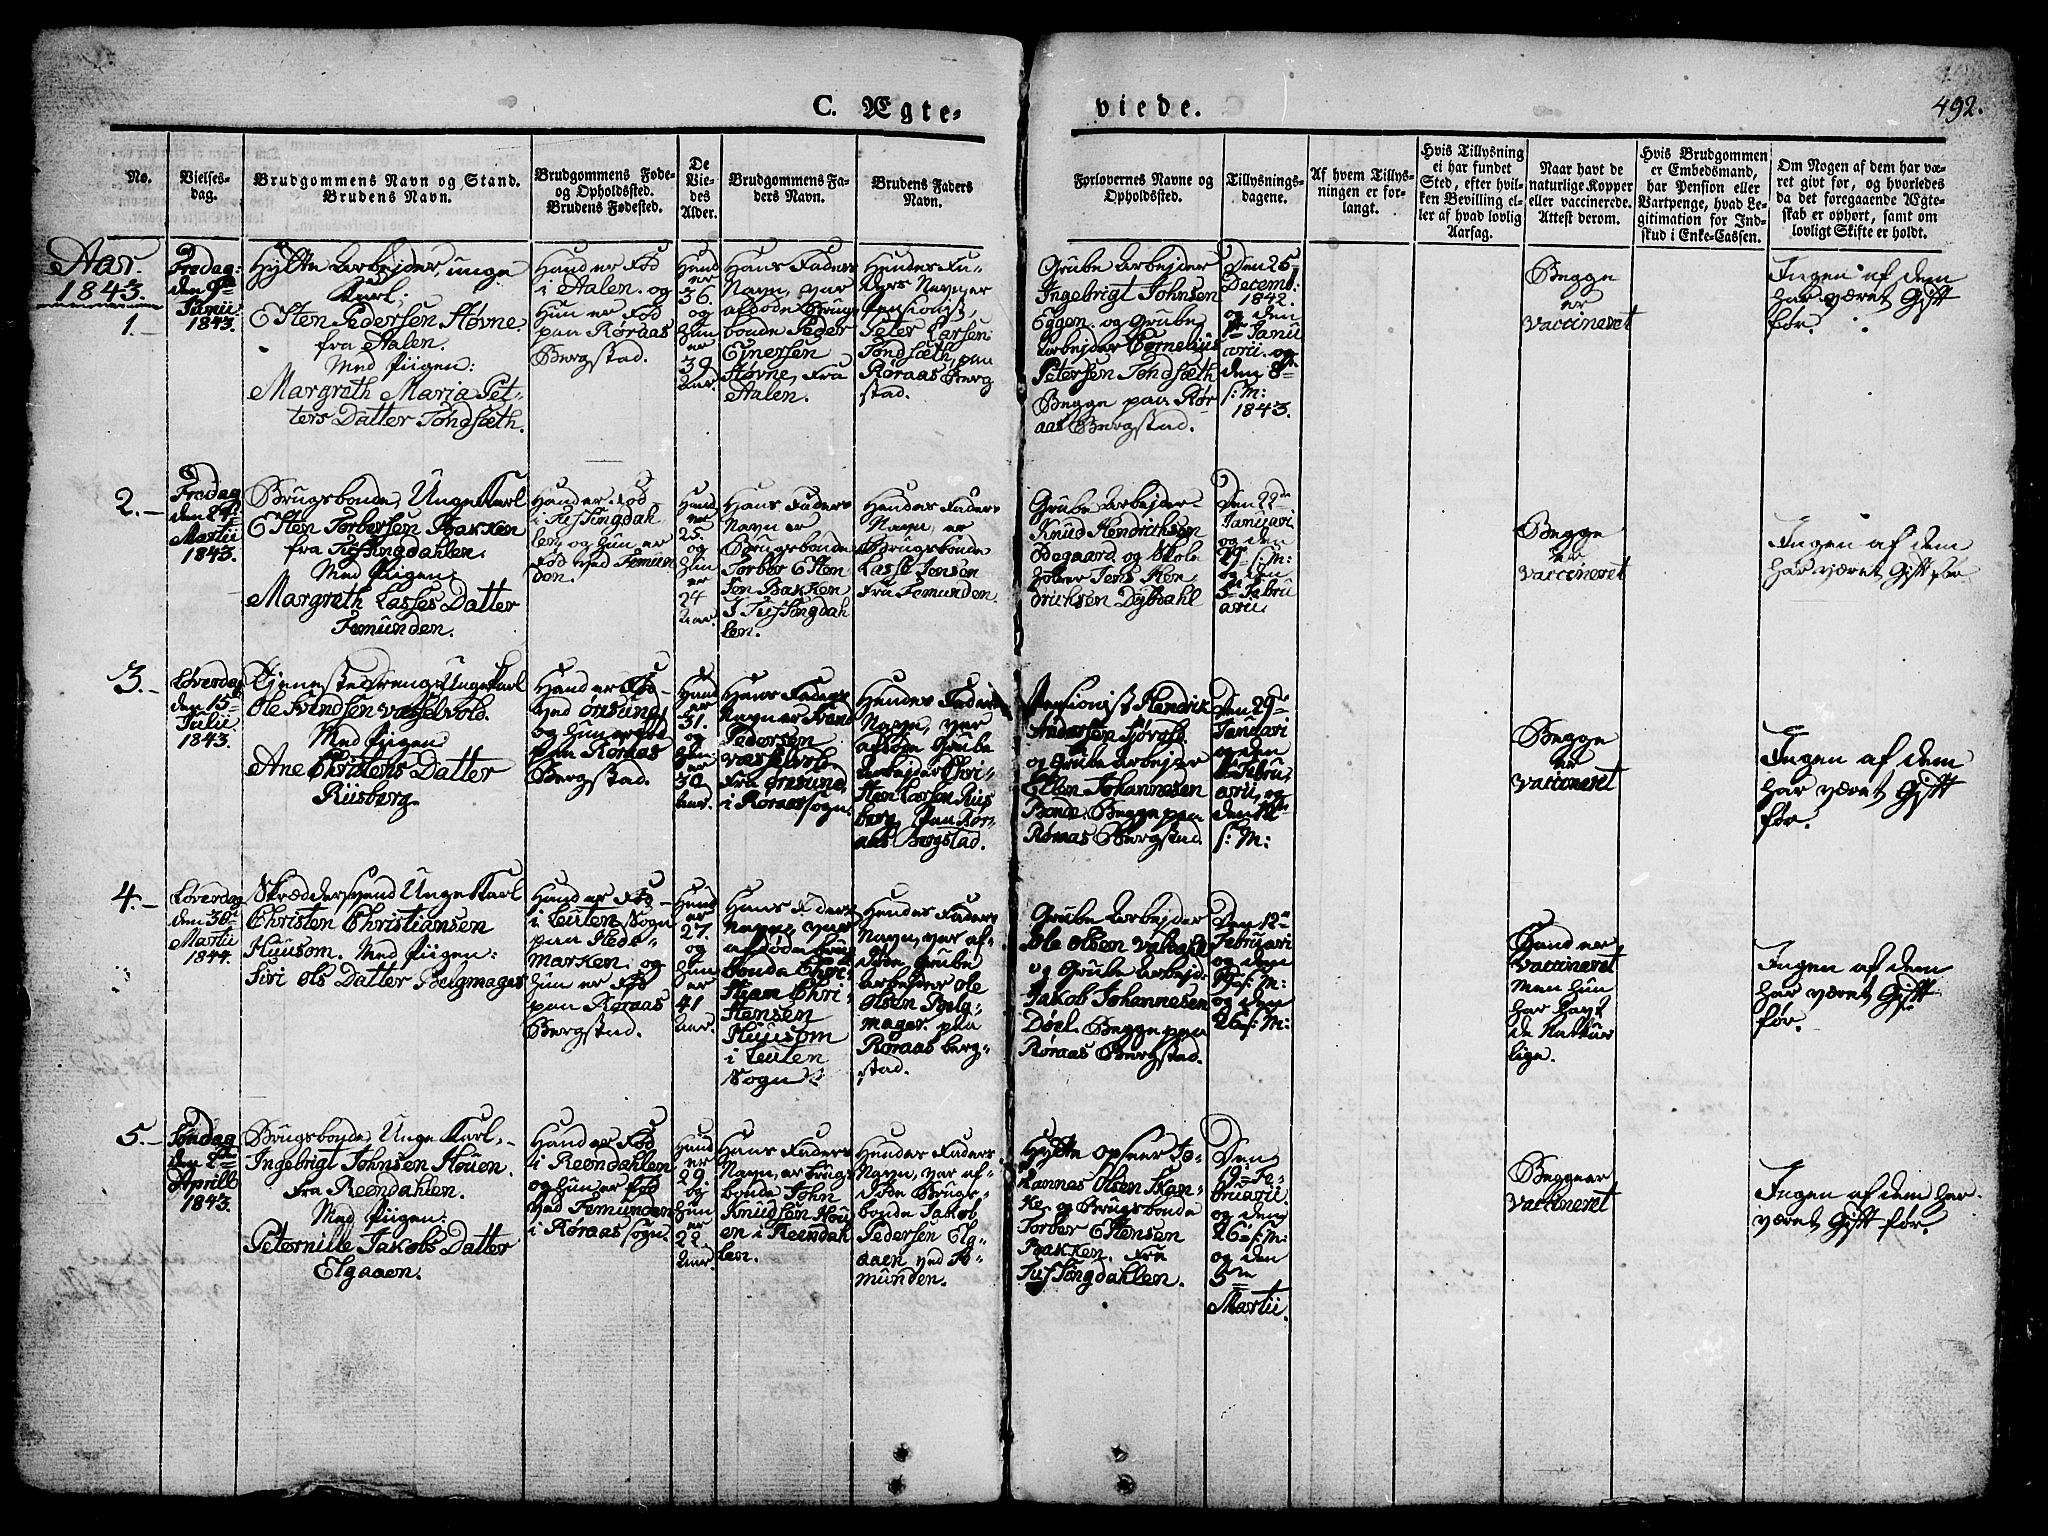 C. Ægte-
viede.
492.
No.
Vielses-
dag.
Brudgommens Navn og Stand.
Brudens Navn.
Brudgommens Føde-
og Opholdssted.
Brudens Fødested.
De
Vie-
des
Alder.
Brudgommens Fa-
ders Navn.
Brudens Faders
Navn.
Forlovernes Navne og
Opholdssted.
Tillysnings-
dagene.
Af hvem Tillys-
ningen er for-
langt.
Hvis Tillysning
ei har fundet
Sted, efter hvil-
ken Bevilling el-
ler af hvad lovlig
Aarsag.
Naar havt de
naturlige Kopper
eller vaccinerede.
Attest derom.
Hvis Brudgommen
er Embedsmand,
har Pension eller
Vartpenge, hvad Le-
gitimation for Ind-
skud i Enke-Cassen.
Om Nogen af dem har væ-
ret givt før, og hvorledes
da det foregaaende Ægte-
skab er ophørt, samt om
lovligt Skifte er holdt.
Aar.
1843.
1.-
Fredag:
den 9de
Junii
1843.
Hytte Arbejder, unge
Karl;
Esten Pedersen Høvne.
fra Aalen.
Med Piigen:
Margreth Maria Pet-
ters Datter Tøndsæth.
Hand er Fød
i Aalen. og
Hun er Fød
paa Røraas
Bergstad.
Hand
er
36.
og
Hun
er
39
Aar.
Hans Faders
Navn, var
afdøde Brugs
bonde Peder
Ejnersen
Høvne, Fra
Aalen.
Hendes Fa-
ders Navn er
Pensionist,
Peter Larsen
Tøndsæth, paa
Røraas Berg
stad.
Grube Arbejder
Ingebrigt Johnsen
Eggen. og Grube
Arbejder Cornelius
Petersen Tøndsæth
Begge paa Rør
aas Bergstad.
Den 25
Decemb:
1842.
og den
1te Janu
arii. og
den 8de
s: M:
1843.
Begge
er
vaccineret
Ingen af dem
har været Gift
før.
2.-
Fredag
den 24de
Martii
1843.
Brugsbonde, Unge Karl
Esten Torbersen Bakken
fra Tufsingdahlen.
Med Piigen:
Margreth Lasses Datter
Femunden.
Hand er Fød
i Tufsingdah
len og hun er
Fød ved Femun
den.
Hand
er
25.
og
Hun
er
24
Aar.
Hans Faders
Navn er
Brugsbonde
Torber Esten
søn Bakken
I Tufsingdah
len.
Hendes Faders
Navn, er
Brugsbonde
Lasse Jensen
Fra Femunden.
Grube Arbejder
Knud Hendrichsen
Ødegaard. og Skole
holder Jens Hen
drichsen Dybdahl
Den 22de
Januari
og den
29de s: M:
og den
5te Febru
arii.
Begge
er
vaccineret
Ingen af dem
har været Gift før
3.-
Løverdag
den 15de
Julii
1843.
Tjenestedreng Unge Karl
Ole Svendsen Vasselvold.
Med Piigen
Ane Christens Datter
Riisberg.
Hand er Fød
ved Øresund
og hun er Fød
paa Røraas
Bergstad.
Hand
er
31.
og
Hun
er
30
Aar.
Hans Faders
Navn er Svend
Pedersen
Vasselvold
Fra Øresund,
i Røraas sogn.
Hendes Faders
Navn, var
afdøde Grube
Arbejder Chri-
sten Larsen Riis
berg, Paa Rør-
aas Bergstad.
Pensionist Hendrik
Andersen Sørøse.
og Grube Arbejder
Ellen Johannesen
Bonde. Begge paa
Røraas Bergstad.
Den 29de
Januari
og den
Febru
arii, og
den 12te
s: M:
Begge
er
vaccineret
Ingen af dem
har været Gift
før.
4.-
Løverdag
den 30te
Martii
1844.
Skræddersvend Unge Karl
Christen Christiansen
Huusom. Med Piigen:
Siri Ols Datter Belgmager
Hand er Fød
i Leuten Sogn
paa Hede-
marken. og
hun er Fød
paa Røraas
Bergstad.
Hand
er
27.
og
Hun
er
41
Aar.
Hans Faders
Navn, var
afdøde Brugs
bonde Chri-
stian Chri-
stensen
Huusom
i Leuten
Sogn
Hendes Faders
Navn, var af-
døde Grube
Arbejder Ole
Olsen Belg-
mager. paa
Røraas berg-
stad.
Grube Arbejder
Ole Olsen
og Grube Arbejd:
Jakob Johannesen
Døel. Begge paa
Røraas Bergstad.
Den 12te
Februari
og den
19de s: M:
og den
26de s: M:
Hand er
vaccineret
Men hun
har havt
de Nattur
lige.
Ingen af dem
har været Gift
før.
5.-
Søndag
den 2den
Aprill
1843.
Brugsbonde, Unge Karl.
Ingebrigt Johnsen Houen.
Fra Reendahlen.
Med Piigen:
Peternille Jakobs Datter
Elgaaen.
Hand er Fød
i Reendahlen
og hun er Fød
ved Femunden
i Røraas sogn.
Hand
er
29.
og
Hun
er
22
Aar.
Hans Faders
Navn, er Brugs
bonde John
Knudsen Hou
en i Reendah
len.
Hendes Faders
Navn, var af-
døde Brugs-
bonde Jakob
Pedersen Elg-
aaen ved Fe
munden.
Hytte Opseer Jo-
hannes Olsen Skan-
ke og Brugsbonde
Torber Estensen
Bakken. Fra
Tufsingdahlen.
Den
19de Fe-
bruarii.
og den
26de s: M:
og den
5te
Martii.
Begge er
vaccineret
Ingen af dem har
været Gift før.